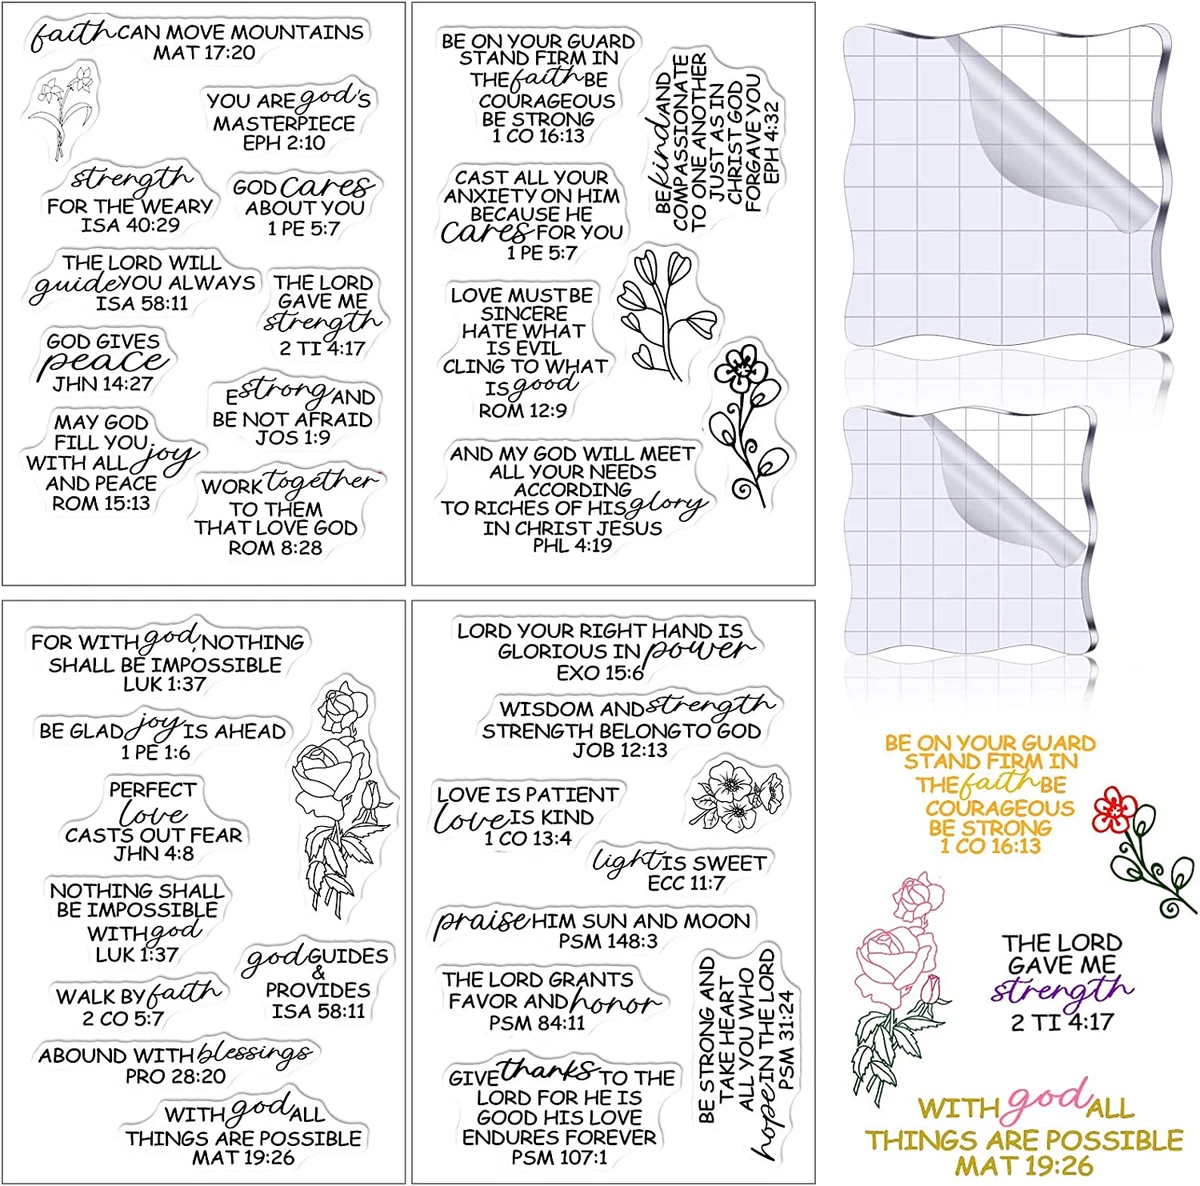 faith CAN MOVE MOUNTAINS
MAT 17:20
YOU ARE god's
MASTERPIECE
EPH 2:10
strength
FOR THE WEARY
ISA 40:29
GOD cares
ABOUT YOU
1 PE 5:7
THE LORD WILL
guide YOU ALWAYS
ISA 58:11
THE LORD
GAVE ME
strength
2 TI 4:17
GOD GIVES
peace
JHN 14:27
E strong AND
BE NOT AFRAID
JOS 1:9
MAY GOD
FILL YOU
WITH ALL joy
AND PEACE
ROM 15:13
WORK together
TO THEM
THAT LOVE GOD
ROM 8:28
BE ON YOUR GUARD
STAND FIRM IN
THE faith BE
COURAGEOUS
BE STRONG
1 CO 16:13
BE kind AND
COMPASSIONATE
TO ONE ANOTHER
JUST AS IN
CHRIST GOD
FORGAVE YOU
EPH 4:32
CAST ALL YOUR
ANXIETY ON HIM
BECAUSE HE
cares FOR YOU
1 PE 5:7
LOVE MUST BE
SINCERE
HATE WHAT
IS EVIL
CLING TO WHAT
IS good
ROM 12:9
AND MY GOD WILL MEET
ALL YOUR NEEDS
ACCORDING
TO RICHES OF HIS glory
IN CHRIST JESUS
PHL 4:19
FOR WITH god, NOTHING
SHALL BE IMPOSSIBLE
LUK 1:37
BE GLAD joy IS AHEAD
1 PE 1:6
PERFECT
love
CASTS OUT FEAR
JHN 4:8
NOTHING SHALL
BE IMPOSSIBLE
WITH god
LUK 1:37
god GUIDES
&
PROVIDES
ISA 58:11
WALK BY faith
2 CO 5:7
ABOUND WITH blessings
PRO 28:20
WITH god ALL
THINGS ARE POSSIBLE
MAT 19:26
LORD YOUR RIGHT HAND IS
GLORIOUS IN power
EXO 15:6
WISDOM AND strength
STRENGTH BELONG TO GOD
JOB 12:13
LOVE IS PATIENT
love IS KIND
1 CO 13:4
light IS SWEET
ECC 11:7
praise HIM SUN AND MOON
PSM 148:3
THE LORD GRANTS
FAVOR AND honor
PSM 84:11
BE STRONG AND
TAKE HEART
ALL YOU WHO
hope IN THE LORD
PSM 31:24
GIVE thanks TO THE
LORD FOR HE IS
GOOD HIS LOVE
ENDURES FOREVER
PSM 107:1
BE ON YOUR GUARD
STAND FIRM IN
THE faith BE
COURAGEOUS
BE STRONG
1 CO 16:13
THE LORD
GAVE ME
strength
2 TI 4:17
WITH god ALL
THINGS ARE POSSIBLE
MAT 19:26